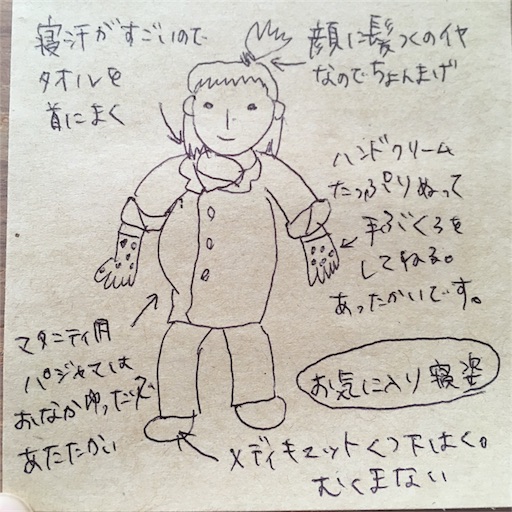 寝汗がすごいので
タオルを
首にまく
顔に髪つくのイヤ
なのでちょんまげ
ハンドクリーム
たっぷりぬって
手ぶくろを
してねる。
あったかいです。
マタニティ用
パジャマは
おなかゆったりで
あたたかい
お気に入り寝姿
メディキュットくつ下はく。
むくまない